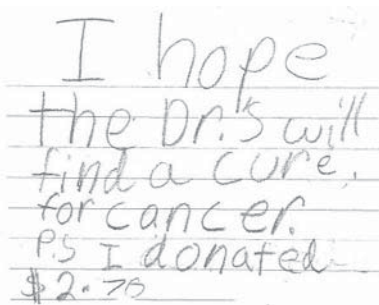 I hope
the Dr.'s will
find a cure.
for cancer.
P.S I donated
$2.70